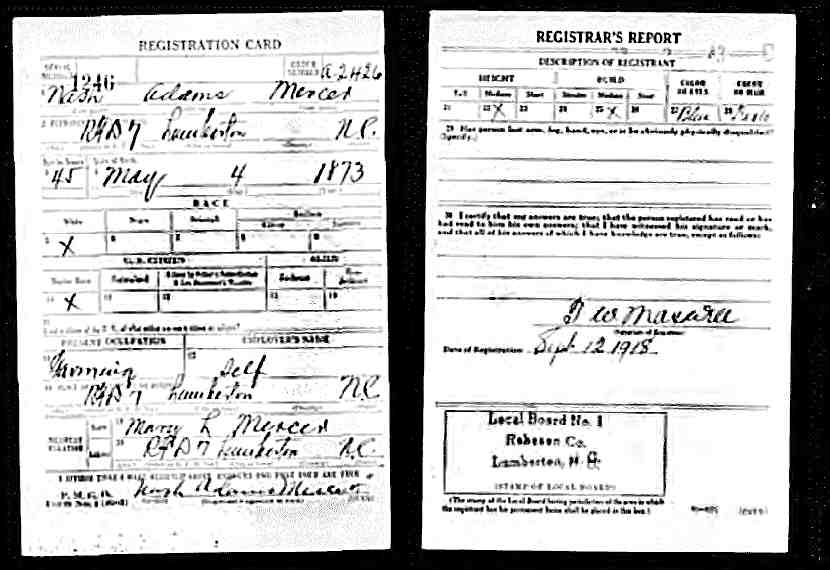 REGISTRATION CARD
SERIAL NUMBER 1246 ORDER NUMBER A2426
Nash Adams Mercer
RFD 7 Lumberton N.C.
Age in Years Date of Birth
45 May 4 1873
RACE
White Negro Oriental Indian
5 X 6 7 8 9
U.S. CITIZEN ALIEN
Native Born Naturalized
10 X 11 12 13 14
PRESENT OCCUPATION EMPLOYER'S NAME
Farming Self
RFD 7 Lumberton N.C.
NEAREST RELATIVE Name Mary L Mercer
Address RFD 7 Lumberton N.C.
I AFFIRM THAT I HAVE VERIFIED ABOVE ANSWERS AND THAT THEY ARE TRUE
P.M.G.O.
Form No. 1 Nash Adams Mercer
REGISTRAR'S REPORT
DESCRIPTION OF REGISTRANT
HEIGHT BUILD COLOR OF EYES COLOR OF HAIR
Tall Medium Short Slender Medium Stout
21 22 X 23 24 25 X 26 27 Blue 28
29 Has person lost arm, leg, hand, eye, or is he obviously physically disqualified?
(Specify.)
30 I certify that my answers are true; that the person registered has read or has
had read to him his own answers; that I have witnessed his signature or mark,
and that all of his answers of which I have knowledge are true, except as follows:
Date of Registration Sept 12 1918
Local Board No. 1
Robeson Co.
Lumberton, N. C.
(STAMP OF LOCAL BOARD)
(The stamp of the Local Board having jurisdiction of the area in which
the registrant has his permanent home shall be placed in this box.)
(OVER)